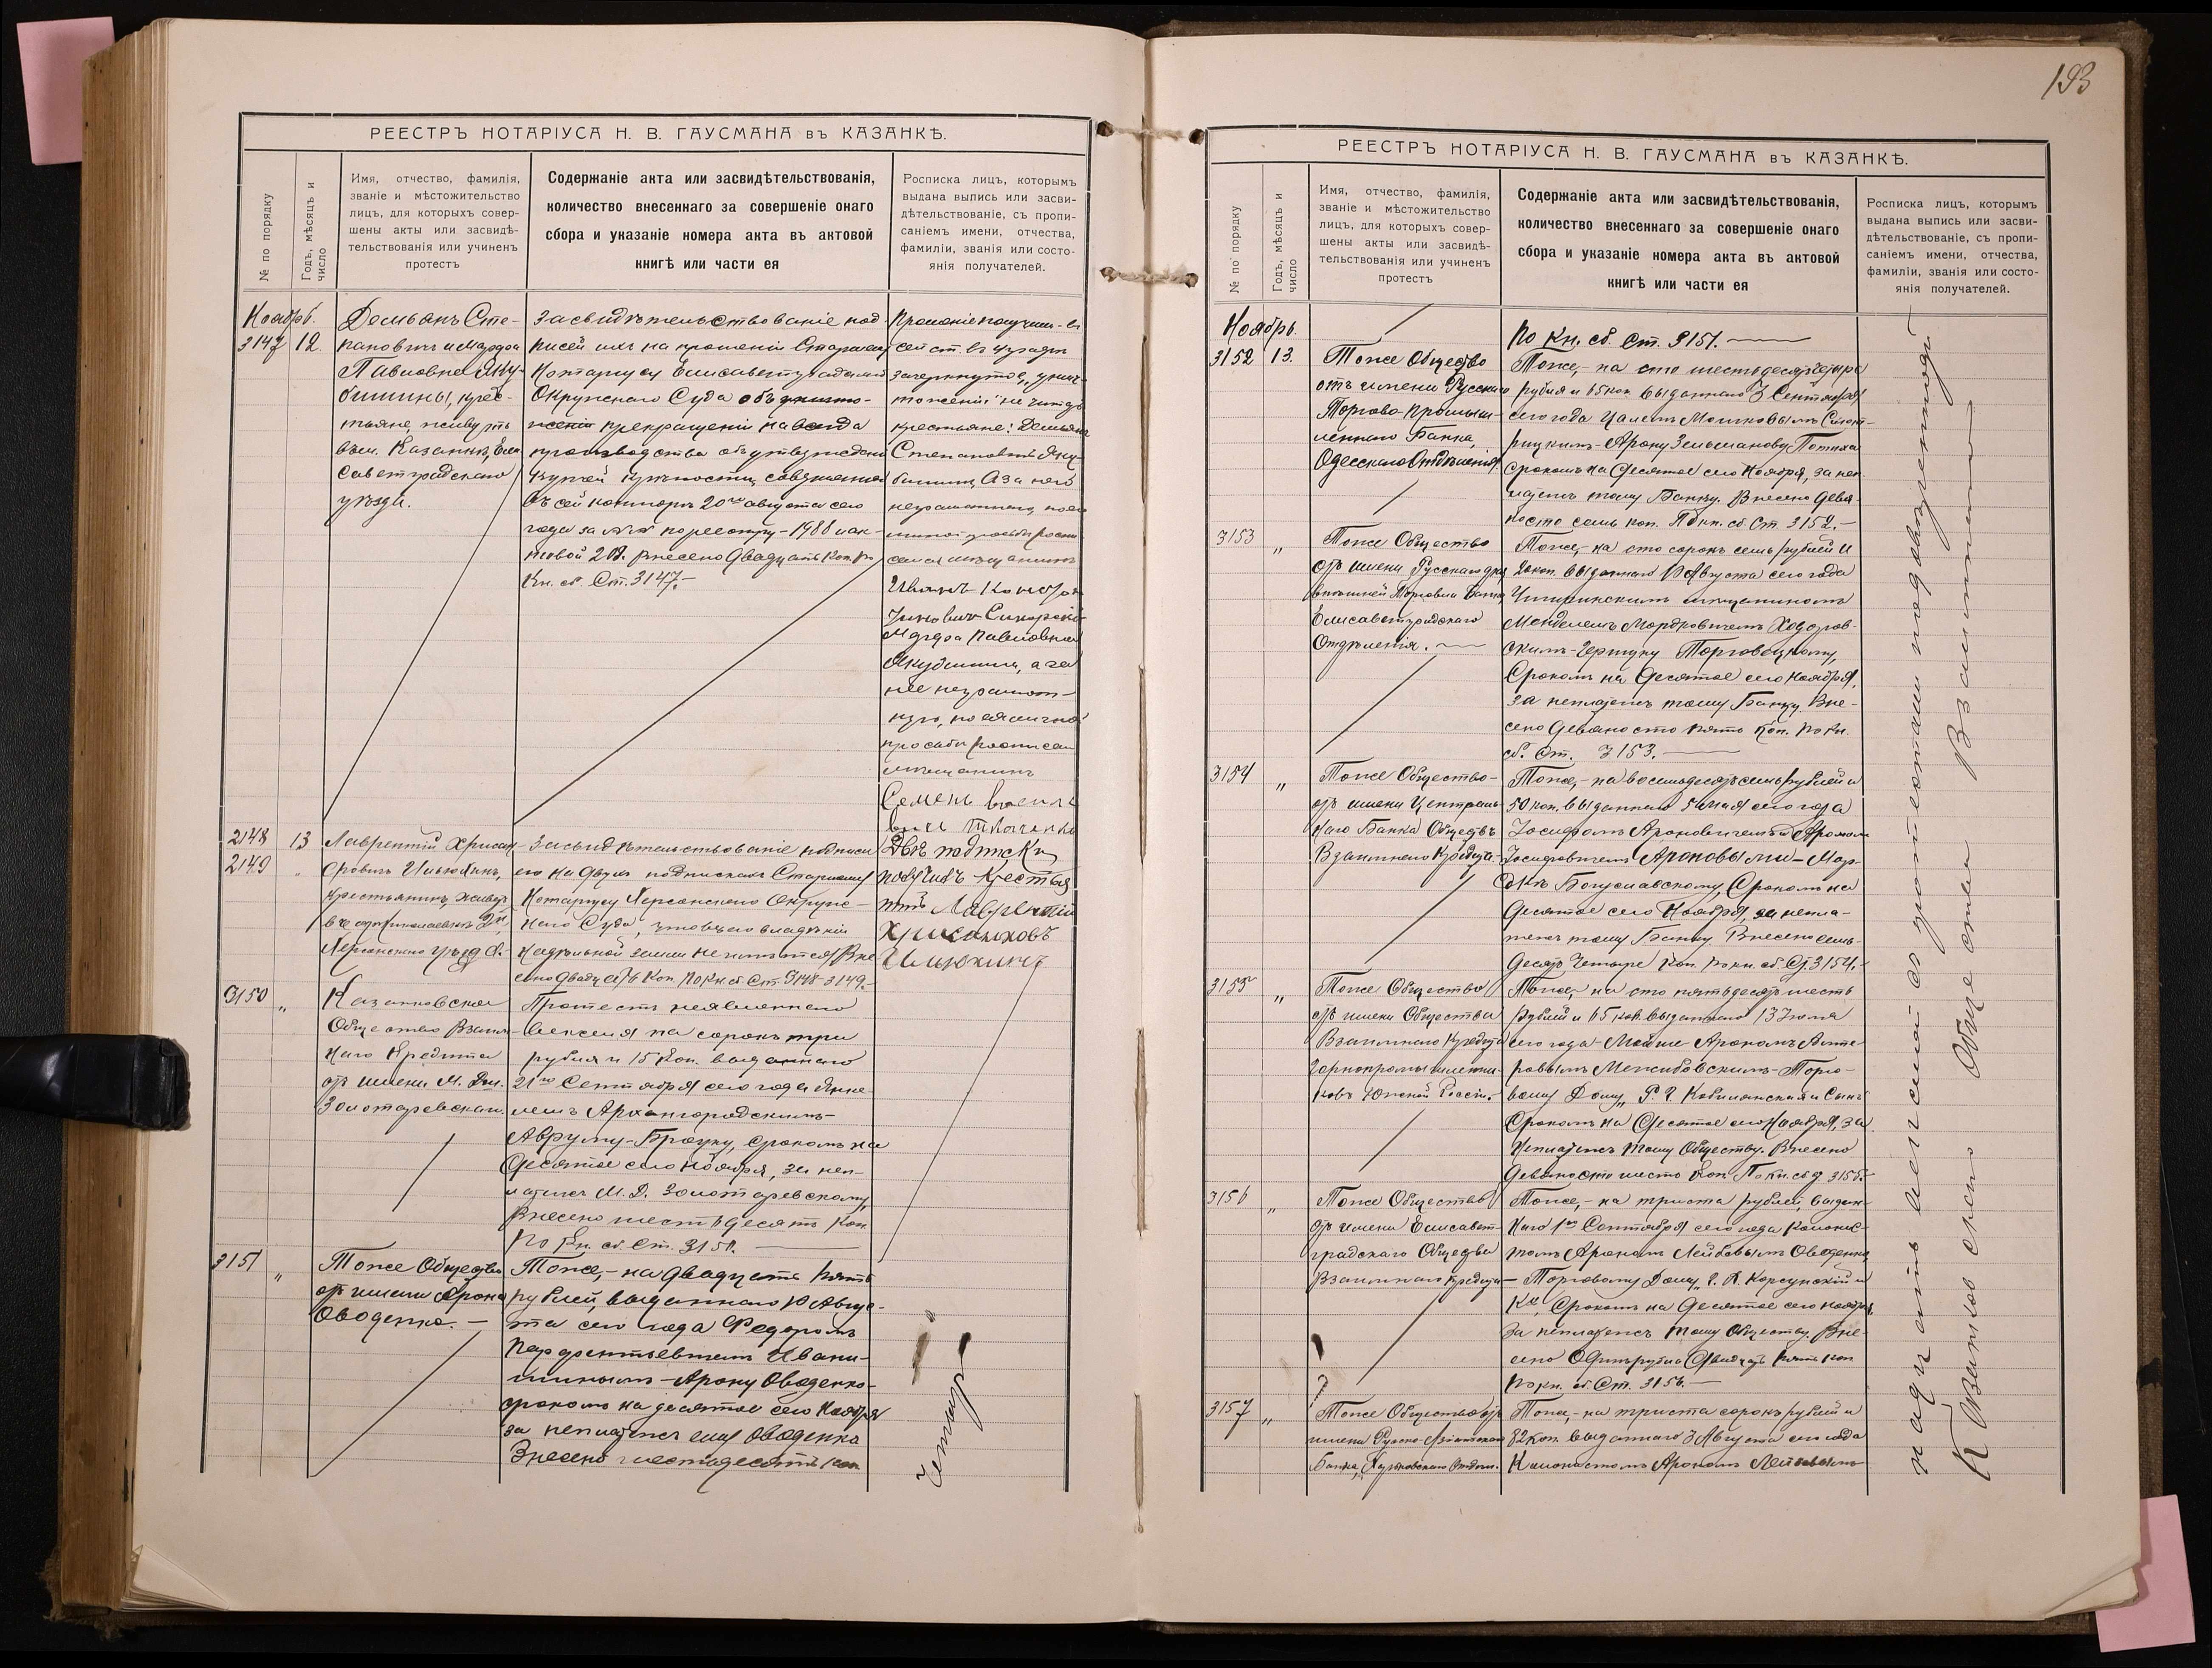 РЕЕСТРЪ НОТАРІУСА Н. В. ГАУСМАНА въ КАЗАНКѢ.
№ по порядку
Годъ, мѣсяцъ и
число
Имя, отчество, фамилія,
званіе и мѣстожительство
лицъ, для которыхъ совер-
шены акты или засвидѣ-
тельствованія или учиненъ
протестъ
Содержаніе акта или засвидѣтельствованія,
количество внесеннаго за совершеніе онаго
сбора и указаніе номера акта въ актовой
книгѣ или части ея
Росписка лицъ, которымъ
выдана выпись или засви-
дѣтельствованіе, съ пропи-
саніемъ имени, отчества,
фамиліи, званія или состо-
янія получателей.
Ноябрь.
3147 12.
Демьянъ Сте-
пановичъ и Марфа
Павловна Яку-
бишины, крес-
тьяне, живутъ
въ м. Казанкѣ, Ели
саветградскаго
уѣзда.
Засвидѣтельствованіе под-
писей ихъ на прошеніи Старшему
Нотаріусу Елисаветградскаго
Окружнаго Суда объ
прекращеніи навсегда
производства объ утвержденіи
купчей крѣпости, совершенной
въ сей конторѣ 20го августа сего
года за № по реестру - 1988 и ак-
товой 28. Внесено двадцать коп. По
Кн. сб. Ст. 3147.-
Прошеніе получили - въ
сей ст. въ 4 графѣ
зачеркнутое „унич-
тоженіи" не читать
крестьяне: Демьянъ
Степановичъ Яку-
бишинъ, а за него
неграмотнаго, по его
личной просьбѣ распи-
сался мѣщанинъ
Иванъ
Марфа Павловна
Якубишина, а за
нее неграмот-
ную, по ея личной
просьбѣ расписался
мѣщанинъ
Семенъ Василь
Ткаченко
2148 13
2149 „
Лаврентій Хрисан-
фовичъ Ильюхинъ,
крестьянинъ, живетъ
Херсонскаго уѣзда.
Засвидѣтельствованіе подписи
его на двухъ подпискахъ Старшему
Нотаріусу Херсонскаго Окруж-
наго Суда, что въ его владѣніи
надѣльной земли не имѣется. Вне
сено двадцать коп. По Кн. сб. Ст. 3148-3149.-
Двѣ подписки
получилъ крестья
нинъ Лаврентій
Хрисанховъ
Ильюхинъ
3150 „
Казанковское
Общество Взаим-
наго Кредита
отъ имени М. Дм.
Золотаревскаго.
Протестъ неявленнаго
векселя на сорокъ три
рубля и 15 коп. выданнаго
21го Сентября сего года
Архангородскимъ-
Авруму-Брауну, срокомъ на
десятое сего Ноября, за неп-
латежъ М. Д. Золотаревскому
Внесено шестьдесятъ коп.
По Кн. сб. Ст. 3150.
3151 „
Тоже Общество
отъ имени Арона
Оводенко. -
Тоже, - на двадцать пять
рублей, выданнаго 10 Авгу-
ста сего года Федоромъ
Парфентьевичемъ Ивани-
шинымъ - Арону Оводенко-
срокомъ на десятое сего Ноября
за неплатежъ ему Оводенко
Внесено шестьдесятъ коп
Четыр-
193
РЕЕСТРЪ НОТАРІУСА Н. В. ГАУСМАНА въ КАЗАНКѢ.
№ по порядку
Годъ, мѣсяцъ и
число
Имя, отчество, фамилія,
званіе и мѣстожительство
лицъ, для которыхъ совер-
шены акты или засвидѣ-
тельствованія или учиненъ
протестъ
Содержаніе акта или засвидѣтельствованія,
количество внесеннаго за совершеніе онаго
сбора и указаніе номера акта въ актовой
книгѣ или части ея
Росписка лицъ, которымъ
выдана выпись или засви-
дѣтельствованіе, съ пропи-
саніемъ имени, отчества,
фамиліи, званія или состо-
янія получателей.
Ноябрь.
По Кн. сб. Ст. 3151.
3152 13.
Тоже Общество
отъ имени Русскаго
Торгово-Промыш-
леннаго Банка,
Одесскаго Отдѣленія
Тоже, - на сто шестьдесятъ четыре
рубля и 65 коп. выданнаго 3 Сентября
сего года
Арону Зельмановичу
срокомъ на десятое сего Ноября, за неп-
латежъ тому Банку. Внесено девя-
носто семь коп. По кн. сб. Ст 3152.-
3153 „
Тоже Общество
отъ имени Русскаго для
внѣшней Торговли Банка,
Елисаветградскаго
Отдѣленія.
Тоже, - на сто сорокъ семь рублей и
20 коп. выданнаго 10 Августа сего года
Чигиринскимъ мѣщаниномъ
Менделемъ Мордковичемъ Ходоров-
скимъ - Герцуну Торговецкому,
Срокомъ на десятое сего Ноября,
за неплатежъ тому Банку. Вне-
сено девяносто пять коп. По кн.
сб. Ст. 3153.
3154 „
Тоже Общество-
отъ имени Централь
наго Банка Обществъ
Взаимнаго Кредита.
Тоже, - на восемьдесятъ семь рублей и
50 коп. выданнаго 5 мая сего года
Іосифомъ Ароновичемъ и Арономъ
Іосифовичемъ Ароновыми - Мор-
дкѣ Богуславскому, Срокомъ на
десятое сего Ноября, за непла-
тежъ тому Банку. Внесено семь-
десятъ четыре коп. По кн. сб. Ст. 3154.-
3155 „
Тоже Общество
отъ имени Общества
Взаимнаго Кредита
Горнопромышленни-
ковъ Южной Россіи.-
Тоже, - на сто пятьдесятъ шесть
рублей и 65 коп. выданнаго 13 Іюля
сего года
Межибовскимъ - Торго-
вому Дому „
Срокомъ на десятое сего Ноября, за
неплатежъ тому Обществу. Внесено
девяносто шесть коп. По кн. сб. Ст 3155.-
3156 „
Тоже Общество
отъ имени Елисавет-
градскаго Общества
Взаимнаго Кредита
Тоже, - на триста рублей, выдан-
наго 1го Сентября сего года колонис-
томъ Арономъ Лейбовымъ Оводенко,
- Торговому Дому „Г. Л. Корсунскій и
Ко", Срокомъ на десятое сего Ноября,
за неплатежъ тому Обществу. Вне-
сено Одинъ рубль двадцать пять коп
По кн. сб. Ст. 3156.-
3157 „
Тоже Общество отъ
имени Русско-Азіатскаго
Банка, Харьковскаго Отдѣл.
Тоже, - на триста сорокъ рублей и
82 коп. выданнаго 3 Августа сего года
Колонистомъ Арономъ Лейбовымъ
надцать векселей съ протестами
Взаимнаго
Общество